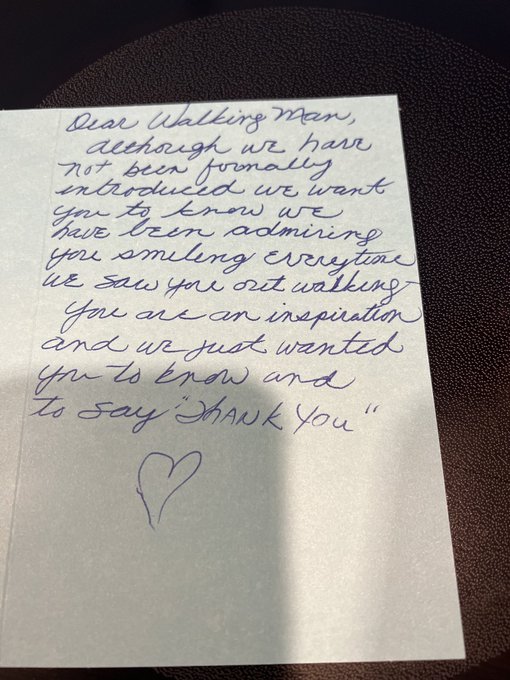 Dear Walking Man,
Although we have
not been formally
introduced we want
you to know we
have been admiring
you smiling everytime
we saw you out walking
You are an inspiration
and we just wanted
you to know and
to say "THANK YOU"